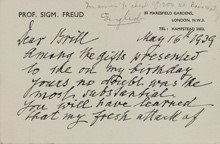 PROF. SIGM. FREUD
20 MARESFIELD GARDENS,
LONDON, N.W.3.
TEL: HAMPSTEAD 2002.
May 16th 1939
Dear Brill
Among the gifts presented
to me on my birthday
yours no doubt was the
most substantial
You will have learned
that my fresh attack of